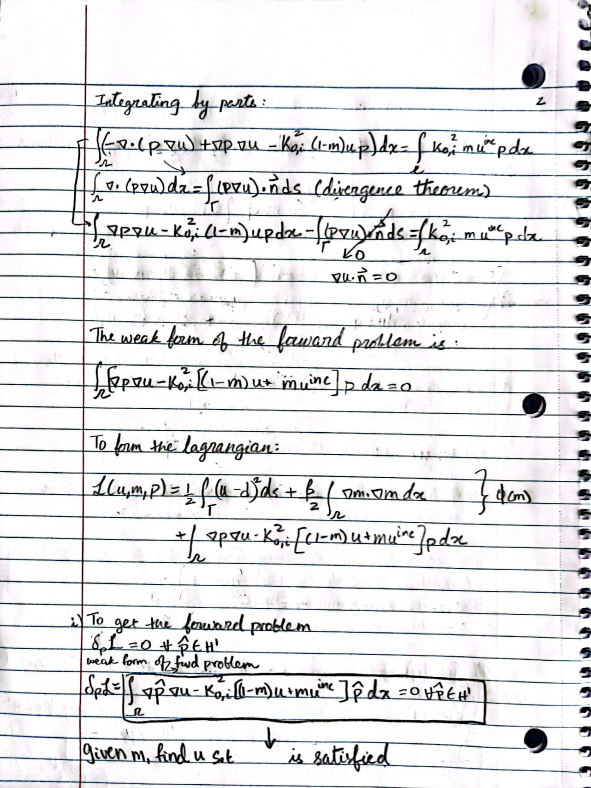 Integrating by parts:
2
∫_Ω (-∇·(p∇u) + ∇p∇u - K²₀,ᵢ (1-m)up)dx = ∫_Ω K²₀,ᵢ m uⁱⁿᶜ p dx
∫_Ω ∇·(p∇u)dx = ∫_Γ (p∇u)·n⃗ ds (divergence theorem)
∫_Ω ∇p∇u - K²₀,ᵢ (1-m)updx - ∫_Γ (p∇u)·n⃗ ds = ∫_Ω K²₀,ᵢ m uⁱⁿᶜ p dx
0
∇u·n⃗ = 0
The weak form of the forward problem is:
∫_Ω [∇p∇u - K²₀,ᵢ [(1-m)u + muⁱⁿᶜ] p dx = 0
To form the lagrangian:
L(u,m,p) = 1/2 ∫_Γ (u-d)² ds + β/2 ∫_Ω ∇m·∇m dx } ϕ(m)
+ ∫_Ω ∇p∇u - K²₀,ᵢ [(1-m)u + muⁱⁿᶜ] p dx
i) To get the forward problem
δₚL = 0 ∀ p̂ ∈ H¹
weak form of fwd problem
δₚL = ∫_Ω ∇p̂∇u - K²₀,ᵢ [(1-m)u + muⁱⁿᶜ] p̂ dx = 0 ∀ p̂ ∈ H¹
given m, find u s.t is satisfied